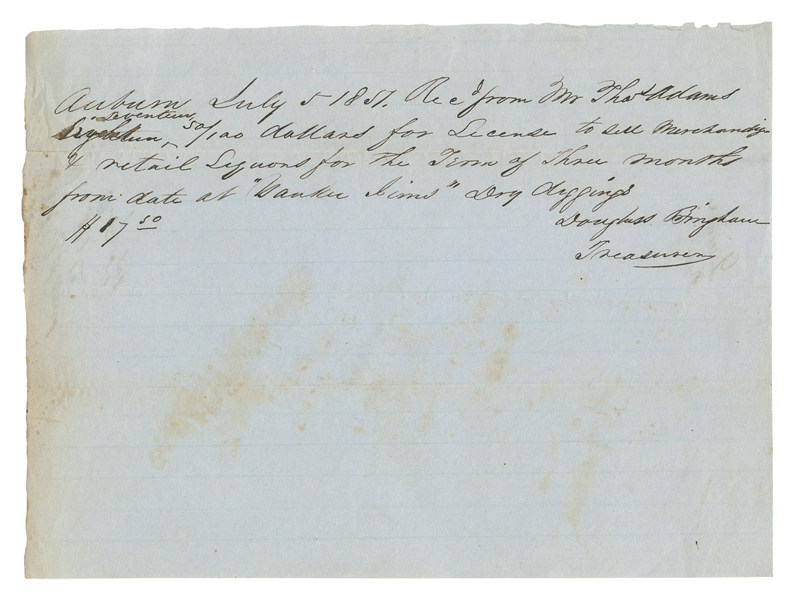 Auburn July 5 1851. Rec'd from Mr Thos Adams
Seventeen
Eighteen 50/100 dollars for License to sell Merchandize
& retail Liquors for the Term of Three months
from date at "Yankee Jims" Dry diggings
$17 50
Douglass Bingham
Treasurer